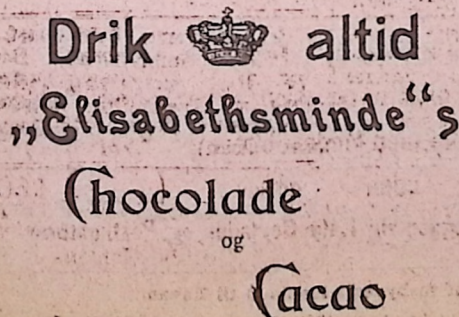 Drik altid
„Elisabethsminde“s
Chocolade
og
Cacao